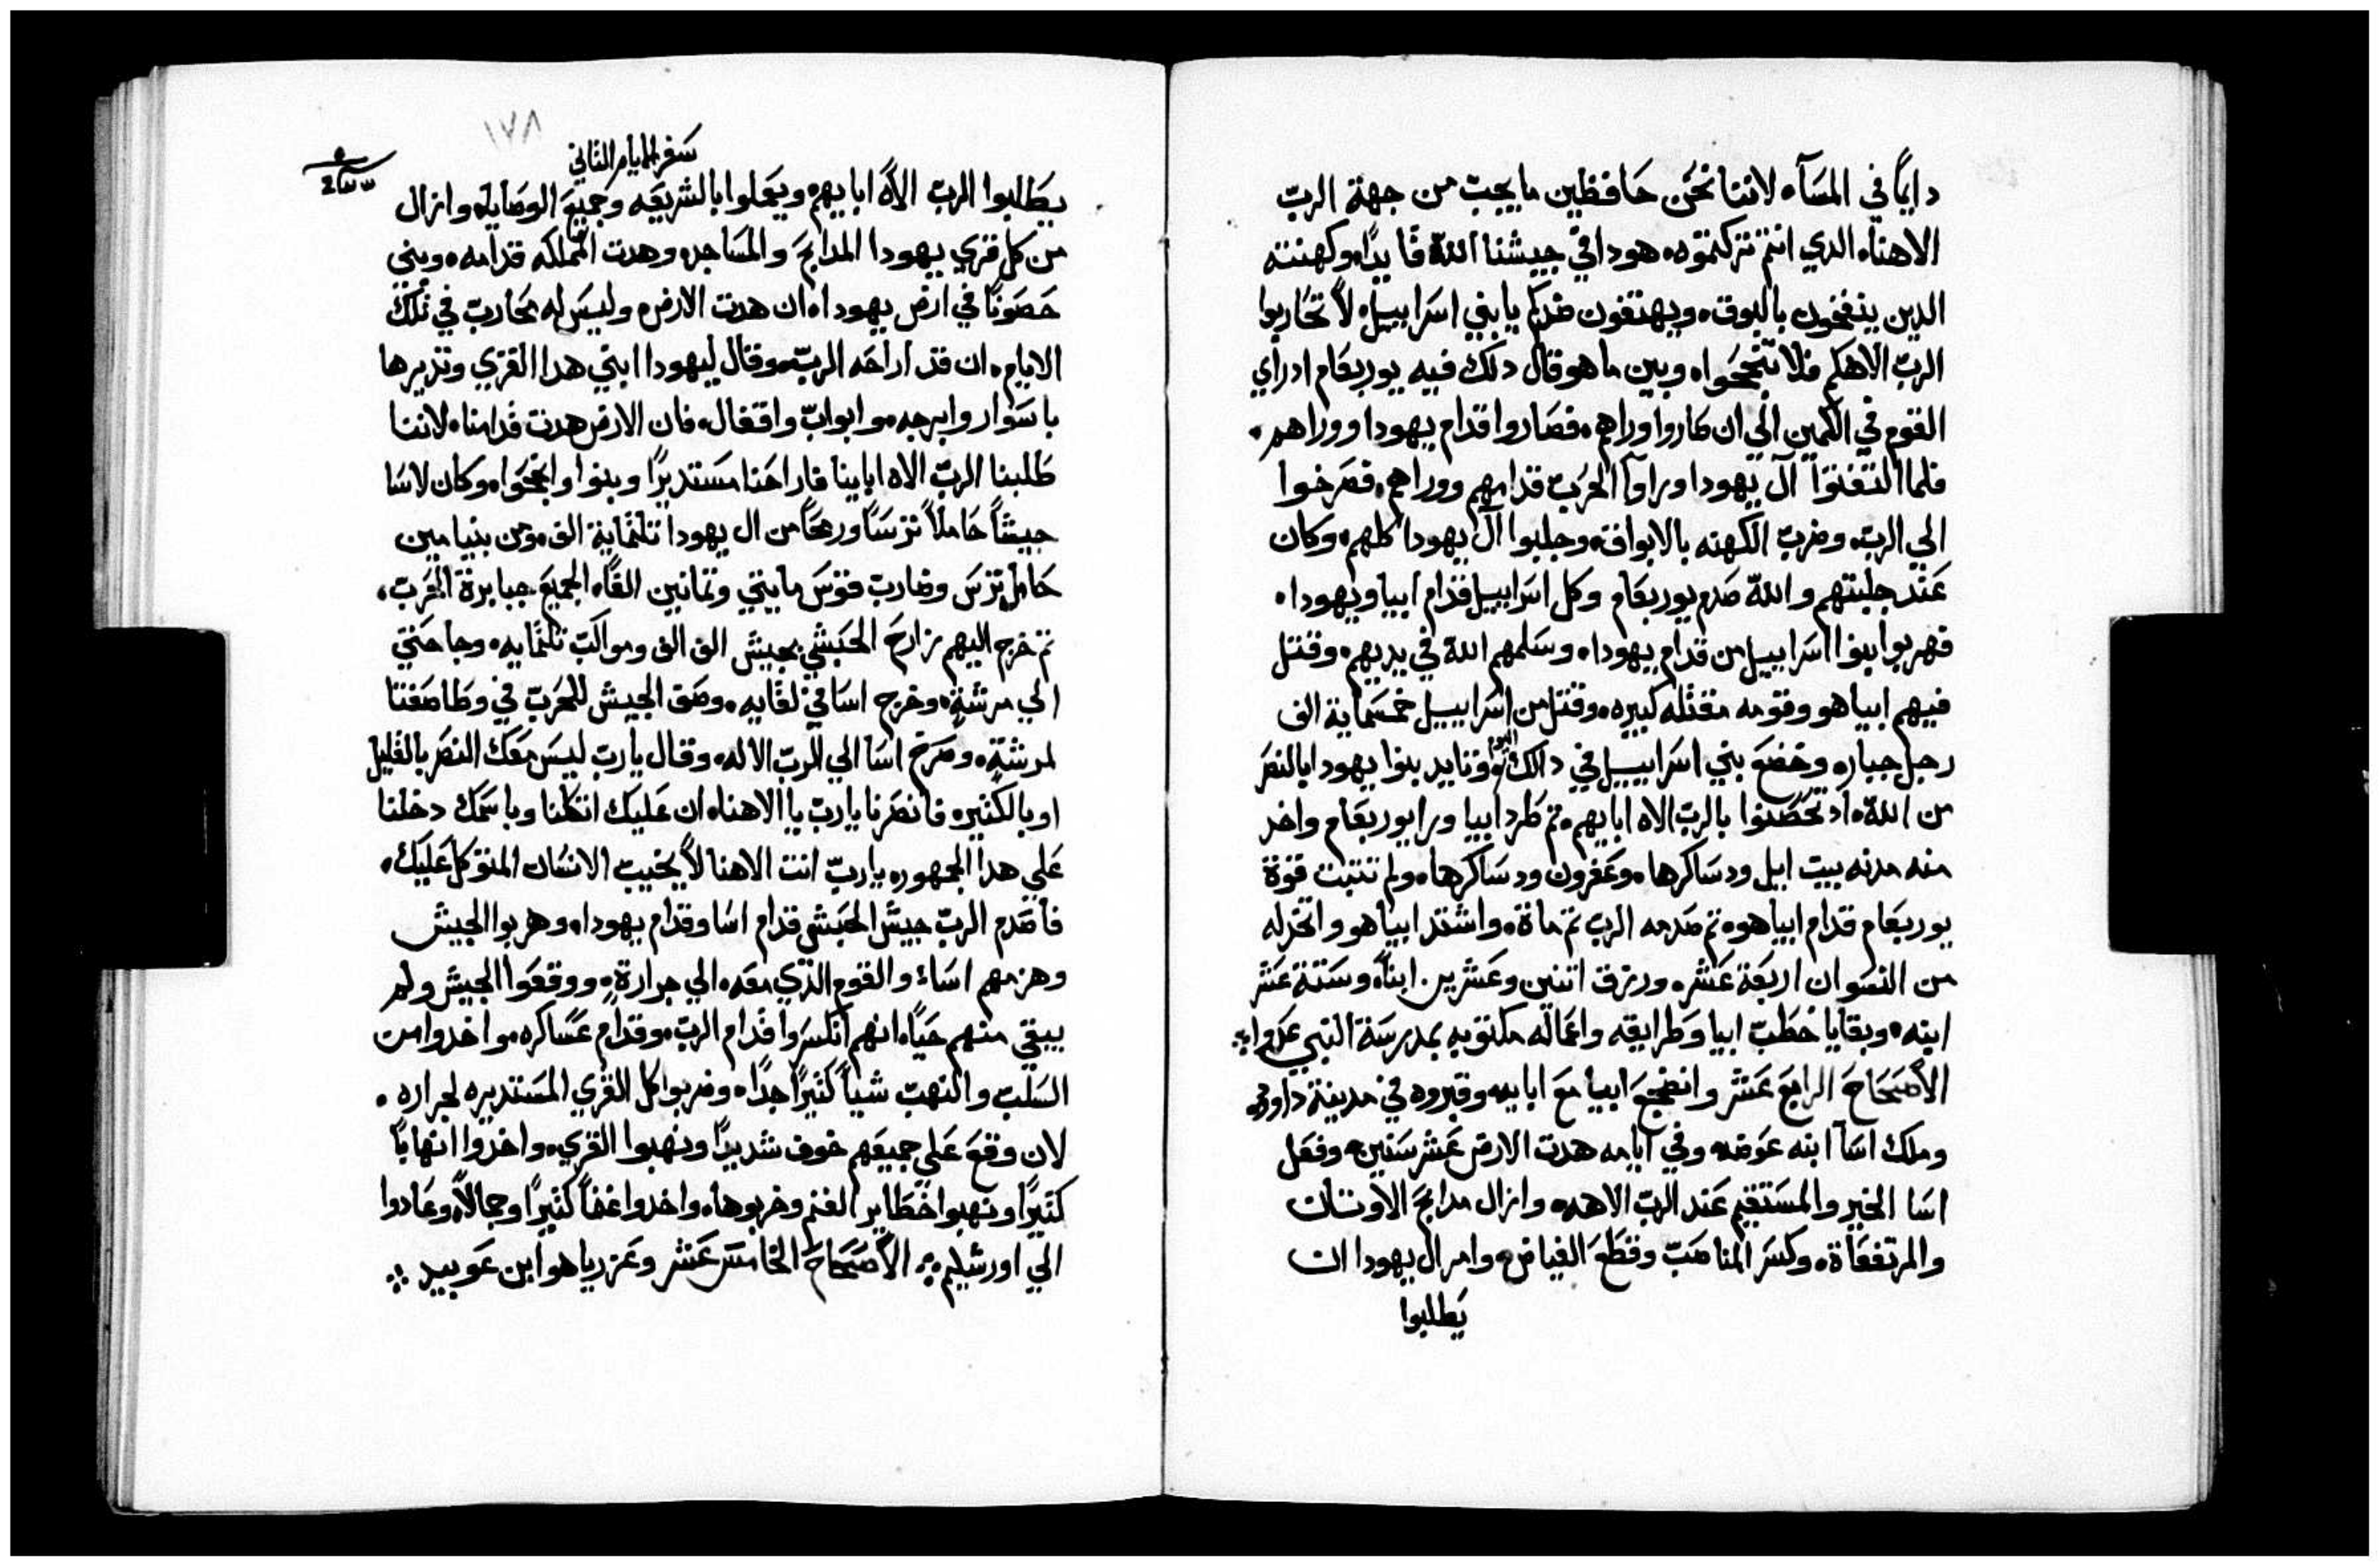 دايمًا في المسآء لاننا نحن حافظين ما يجب من جهة الربّ
الاهنا، الدي انتم تركتموه، هودا في جيشنا اللّه قايدًا، وكهنته
الدين ينفخون بالبوق، ويهتفون ضدكم يا بني اسراييل، لا تحاربوا
الربّ الاهكم فلا تنجحوا، وبين ما هو قال دلك فيه يوربعام ادراي
القوم في الكمين الي ان صاروا وراهم، فصاروا قدام يهودا ووراهم،
فلما التفتوا آل يهودا وراوا الحرب قدامهم ووراهم، فصرخوا
الي الرب، وضرب الكهنه بالابواق، وجلبوا آل يهودا كلهم، وكان
عند جلبتهم واللّه صدم يوربعام وكل اسراييل قدام ابيا ويهودا،
فهربوا بنوا اسراييل من قدام يهودا، وسلمهم اللّه في يديهم، وقتل
فيهم ابيا هو وقومه مقتله كبيره، وقتل من اسراييل خمسماية الف
رجل جبار، وخضع بني اسراييل في دالك اليوم وتايد بنوا يهودا بالنصر
من اللّه، اد تحصنوا بالربّ الاه ابايهم، تم طرد ابيا ورا يوربعام واخد
منه مدنه بيت ايل ودساكرها، وعفرون ودساكرها، ولم تتبت قوة
يوربعام قدام ابيا هو، تم صدمه الرب تم ماة، واشتد ابيا هو واتخد له
من النسوان اربعة عشر، ورزق اتنين وعشرين ابنًا، وستة عشر
ابنه، وبقايا خطب ابيا وطرايقه واعماله مكتوبه بمدرسة النبي عدوا ؞
الأصحاح الرابع عشر وانضجع ابيا مع ابايه وقبروه في مدينة داوود
وملك اسآ ابنه عوضه وفي ايامه هدت الارض عشر سنين، وفعل
اسا الخير والمستقيم عند الربّ الاهه، وازال مدابح الاوتان
والمرتفعاة، وكسر المناصب وقطع الغياض، وامر ال يهودا ان
يطلبوا
١٧٨
سفر الايام التاني
يطلبوا الربّ الاه ابايهم ويعملوا بالشريعه وجميع الوصايا، وازال
من كل قري يهودا المدابح والمساجد، وهدت المملكه قدامه، وبني
حصونًا في ارض يهودا، ان هدت الارض، وليس له محارب في تلك
الايام، ان قد اراحه الربّ، وقال ليهودا ابني هدا القري وتديرها
باسوار وابرجه، وابواب واقفال، فان الارض هدت قدامنا، لاننا
طلبنا الربّ الاه اباينا فاراحنا مستديرًا وبنوا وانجحوا، وكان لاسا
جيشًا حاملًا ترسًا ورمحًا من ال يهودا تلتماية الف، ومن بنيامين
حامل ترس وضارب قوس مايتي وتمانين الفًا، الجميع جبابرة الحرب،
تم خرج اليهم زارح الحبشي بجيش الف الف ومواكب تلتمايه، وجا حتي
الي مرشة، وخرج اسا في لقايه، وصف الجيش للحرب في وطا صفتا
لمرشة، وصرخ اسا الي الربّ الاله، وقال يا ربّ ليس معك النصر بالقليل
او بالكتيره فانصرنا يا ربّ يا الاهنا، ان عليك اتكلنا وباسمك دخلنا
علي هدا الجمهور، يا ربّ انت الاهنا لا يخيب الانسان المتوكل عليك،
فاصدم الربّ جيش الحبشي قدام اسا وقدام يهودا، وهربوا الجيش
وهزمهم اساء والقوم الذي معه، الي جرارة، ووقعوا الجيش ولم
يبقي منهم حيًا، انهم انكسروا قدام الربّ، وقدام عساكره، واخدوا من
السلب والنهب شيًا كتيرًا جدًا، وضربوا كل القري المستديره لجراره،
لان وقع علي جميعهم خوف شديدًا ونهبوا القري، واخدوا انهابًا
كتيرًا ونهبوا حظاير الغنم وخربوها، واخدوا غنمًا كتيرًا وجمالًا، وعادوا
الي اورشليم ؞ الأصحاح الخامس عشر وعزرياهو ابن عوبيد ؞